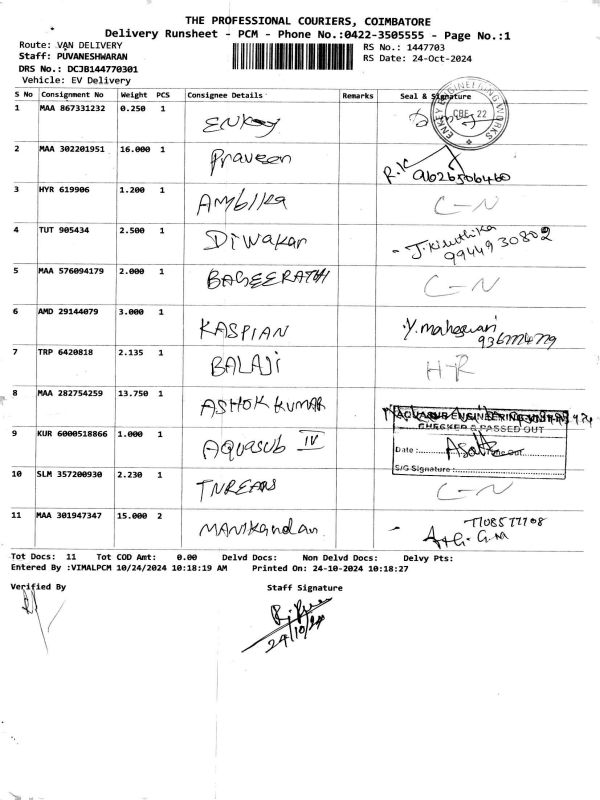 THE PROFESSIONAL COURIERS, COIMBATORE
Delivery Runsheet - PCM - Phone No.:0422-3505555 - Page No.:1
Route: VAN DELIVERY RS No.: 1447703
Staff: PUVANESHWARAN RS Date: 24-Oct-2024
DRS No.: DCJB144770301
Vehicle: EV Delivery
S No Consignment No Weight PCS Consignee Details Remarks Seal & Signature
1 MAA 867331232 0.250 1 ENKEY ENKEY ENGINEERING WORKS CBE 22
2 MAA 302201951 16.000 1 Praveen R.K 9626506460
3 HYR 619906 1.200 1 AMBIKA C-N
4 TUT 905434 2.500 1 DIWAKAR - J.Kiruthika
9944930802
5 MAA 576094179 2.000 1 BAGEERATHI C-N
6 AMD 29144079 3.000 1 KASPIAN Y.maheswari
7 TRP 6420818 2.135 1 BALAJI H-R
8 MAA 282754259 13.750 1 ASHOK KUMAR
9 KUR 6000518866 1.000 1 AQUASUB IV
AQUASUB ENGINEERING
CHECKED & PASSED OUT
Date :
S/G Signature :
10 SLM 357200930 2.230 1 C-N
11 MAA 301947347 15.000 2 MANIKANDAN - 7708577708
Tot Docs: 11 Tot COD Amt: 0.00 Delvd Docs: Non Delvd Docs: Delvy Pts:
Entered By :VIMALPCM 10/24/2024 10:18:19 AM Printed On: 24-10-2024 10:18:27
Verified By Staff Signature
24/10/24